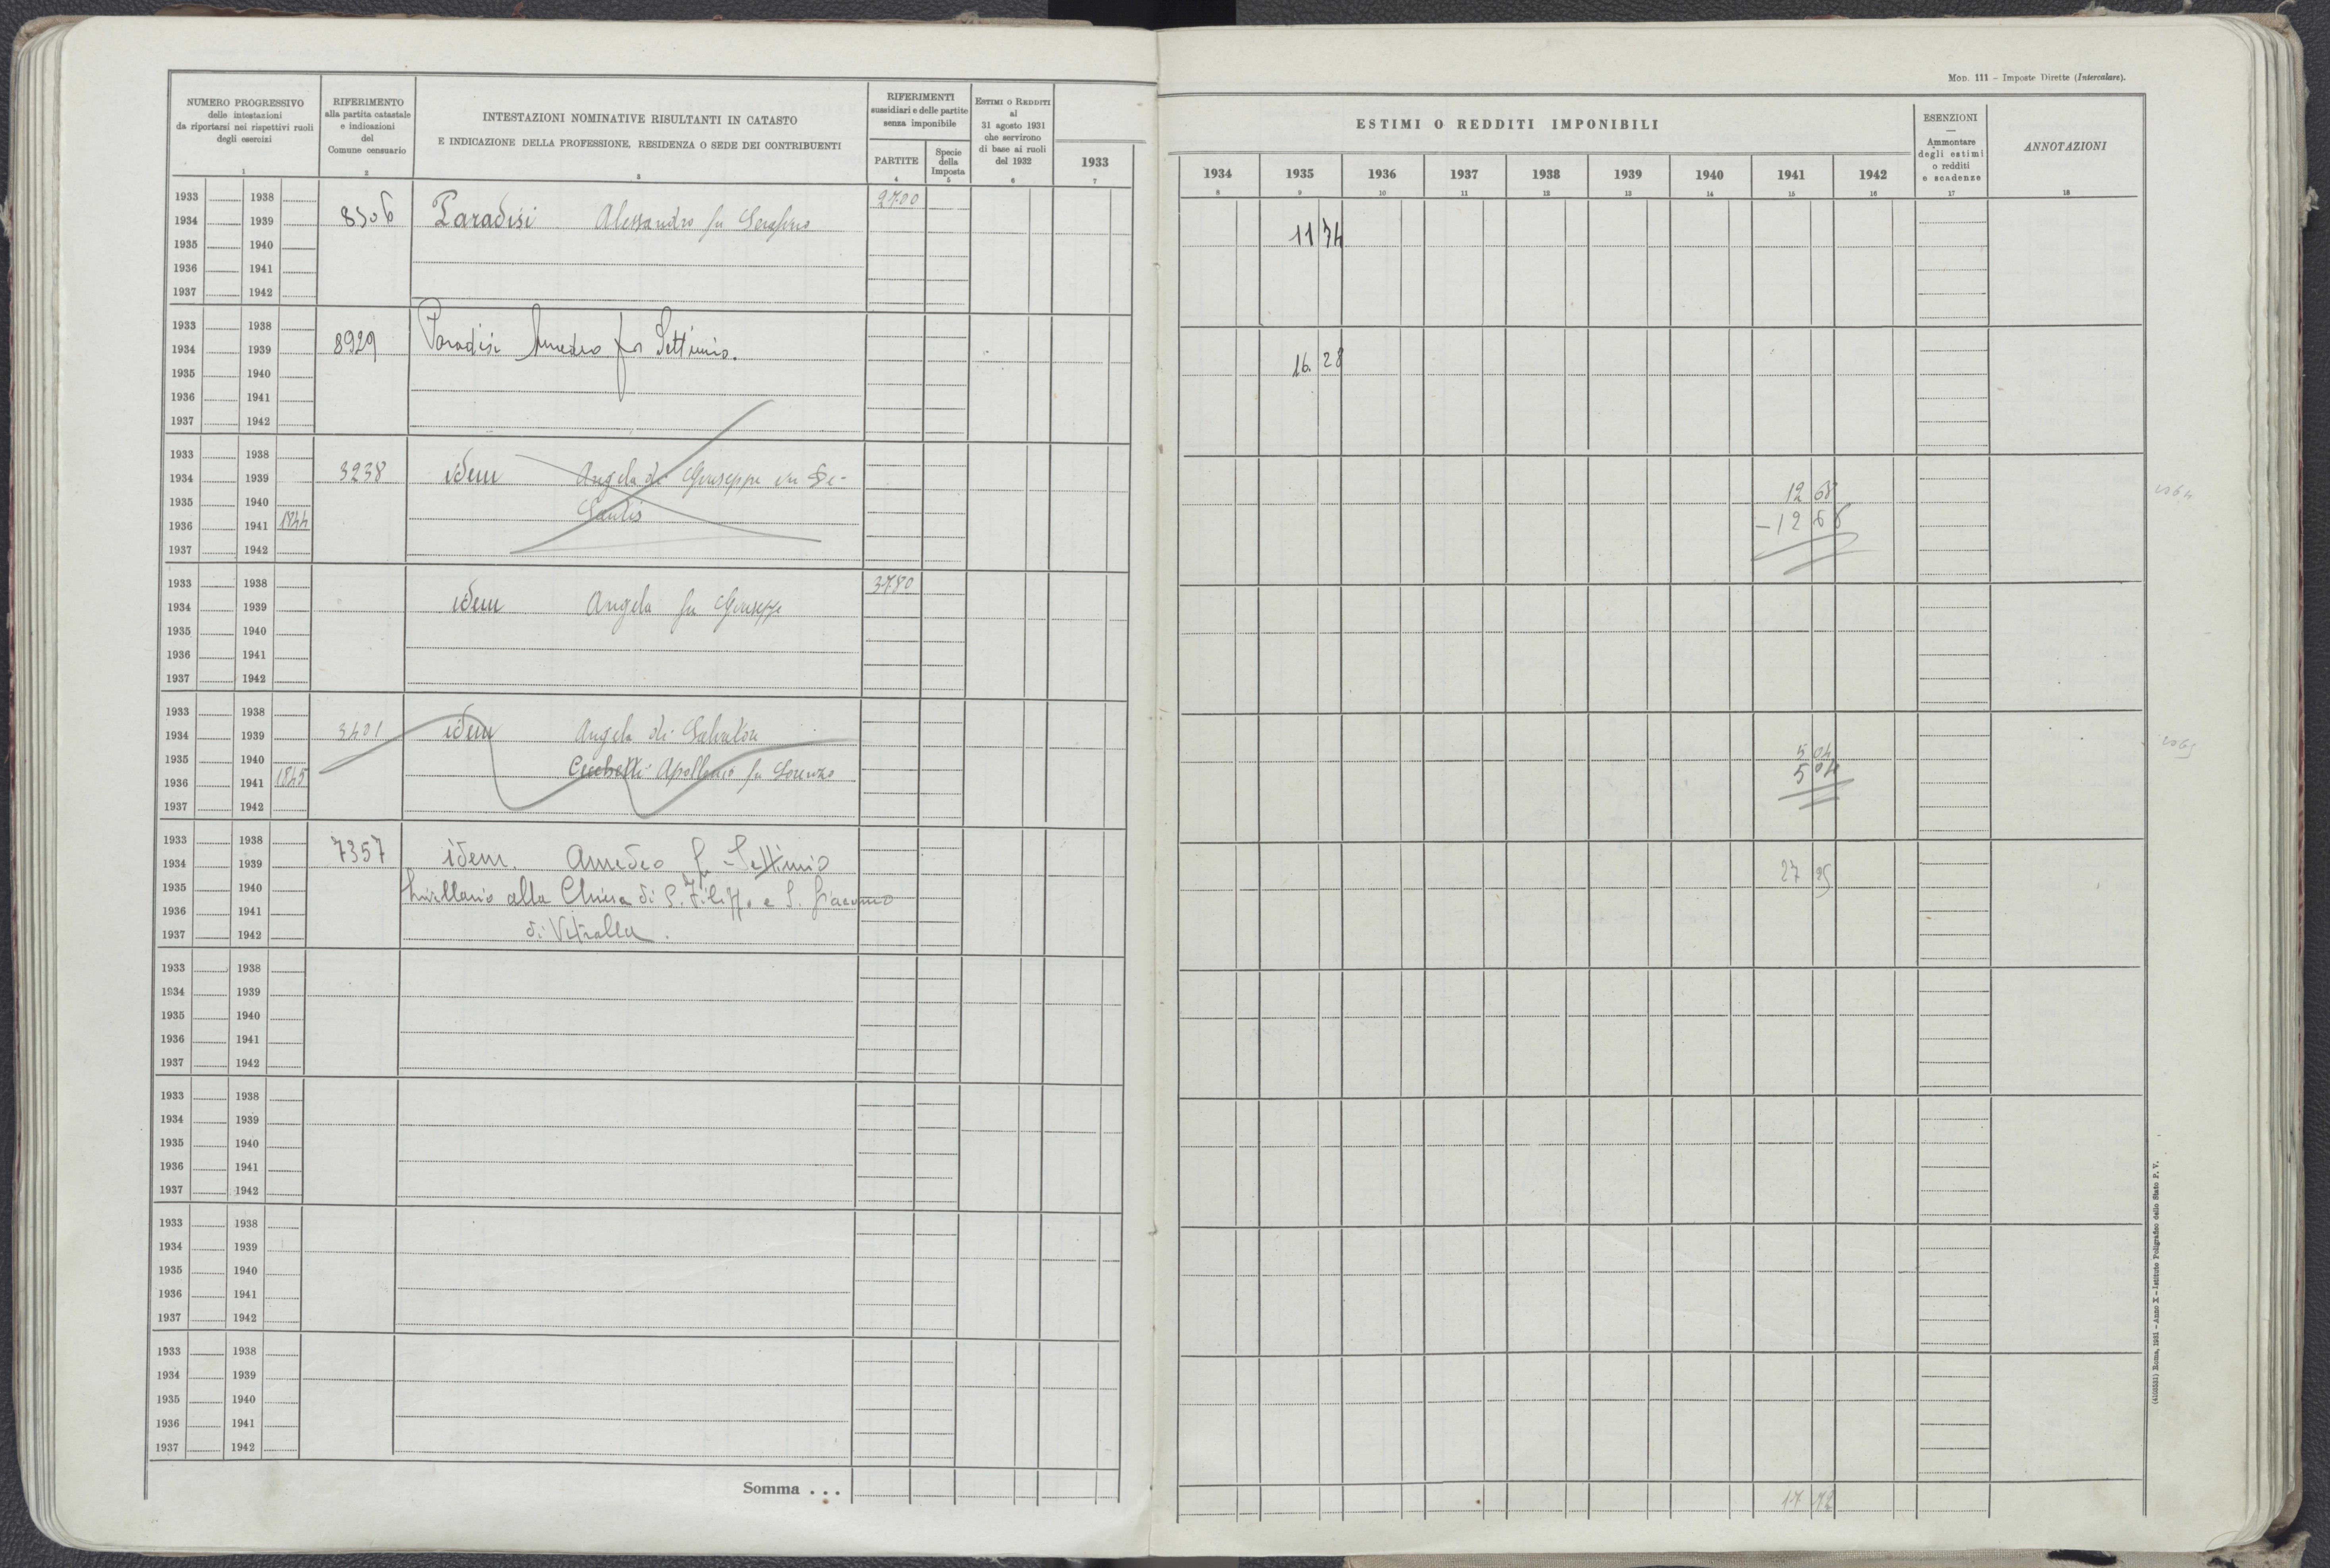 NUMERO PROGRESSIVO
delle intestazioni
da riportarsi nei rispettivi ruoli
degli esercizi
1
RIFERIMENTO
alla partita catastale
e indicazioni
del
Comune censuario
2
INTESTAZIONI NOMINATIVE RISULTANTI IN CATASTO
E INDICAZIONE DELLA PROFESSIONE, RESIDENZA O SEDE DEI CONTRIBUENTI
3
RIFERIMENTI
sussidiari e delle partite
senza imponibile
PARTITE
4
Specie
della
Imposta
5
ESTIMI O REDDITI
al
31 agosto 1931
che servirono
di base ai ruoli
del 1932
6
1933
7
MOD. 111 - Imposte Dirette (Intercalare).
ESTIMI O REDDITI IMPONIBILI
1934 1935 1936 1937 1938 1939 1940 1941 1942
8 9 10 11 12 13 14 15 16
ESENZIONI
—
Ammontare
degli estimi
o redditi
e scadenze
17
ANNOTAZIONI
18
1933 1938 2700
1934 1939 8506 Paradisi Alessandro fu Serafino 11 74
1935 1940
1936 1941
1937 1942
1933 1938
1934 1939 8929 Paradisi Amedeo fu Settimio. 16. 28
1935 1940
1936 1941
1937 1942
1933 1938
1934 1939 3238 idem Angela di Giuseppe in De- 12 68
1935 1940 Santis
1936 1941 1844 - 12 68
1937 1942
1933 1938 3780
1934 1939 idem Angela fu Giuseppe
1935 1940
1936 1941
1937 1942
1933 1938
1934 1939 3401 idem Angela di Salvatore 5 04
1935 1940 Cecchetti Apollonio fu Lorenzo 5 04
1936 1941 1845
1937 1942
1933 1938 7357 idem. Amedeo fu Settimio
1934 1939 27 25
1935 1940 livellario alla Chiesa di S. Filippo e S. Giacomo
1936 1941
1937 1942 di Vetralla.
1933 1938
1934 1939
1935 1940
1936 1941
1937 1942
1933 1938
1934 1939
1935 1940
1936 1941
1937 1942
1933 1938
1934 1939
1935 1940
1936 1941
1937 1942
1933 1938
1934 1939
1935 1940
1936 1941
1937 1942
Somma . . . 17 72
(4103531) Roma, 1931 - Anno X - Istituto Poligrafico dello Stato P. V.